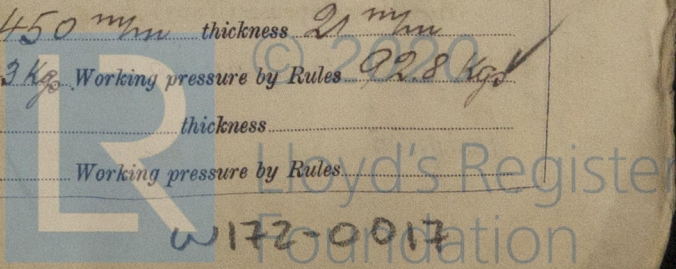 450 m/m thickness 21 m/m
3 Kgs Working pressure by Rules 92.8 Kgs
thickness
Working pressure by Rules
W172-0017
LR
© 2020
Lloyd's Register
Foundation